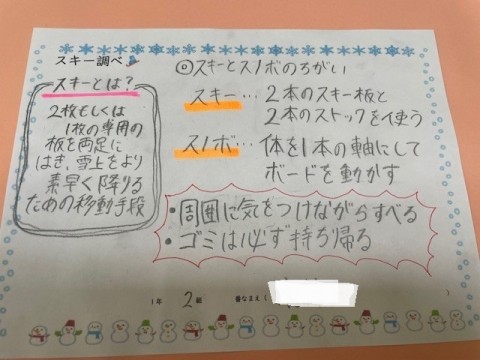 スキー調べ
スキーとは?
2枚もしくは
1枚の専用の
板を両足に
はき、雪上をより
素早く降りる
ための移動手段
◎スキーとスノボのちがい
スキー…2本のスキー板と
2本のストックを使う
スノボ…体を1本の軸にして
ボードを動かす
・周囲に気をつけながらすべる
・ゴミは必ず持ち帰る
1年 2組 番なまえ( )